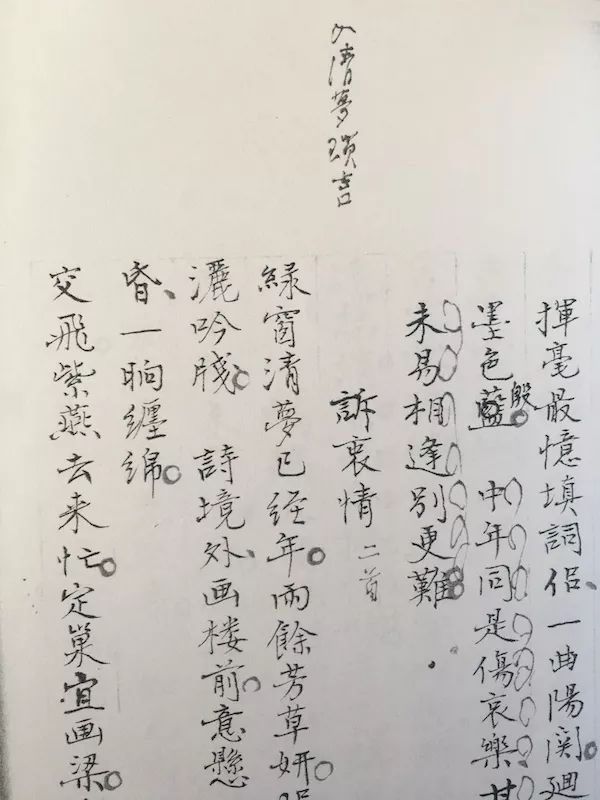 入清夢瑣言
揮毫最憶填詞侶、一曲陽関。廻
墨色藍殷。 中年同是傷哀樂、
未易相逢別更難
訴衷情 二首
緑窗清夢已經年。雨餘芳草妍。
灑吟牋。 詩境外、画楼前。意懸
昏、一晌纏綿。
交飛紫燕去来忙。定巢宜画梁。